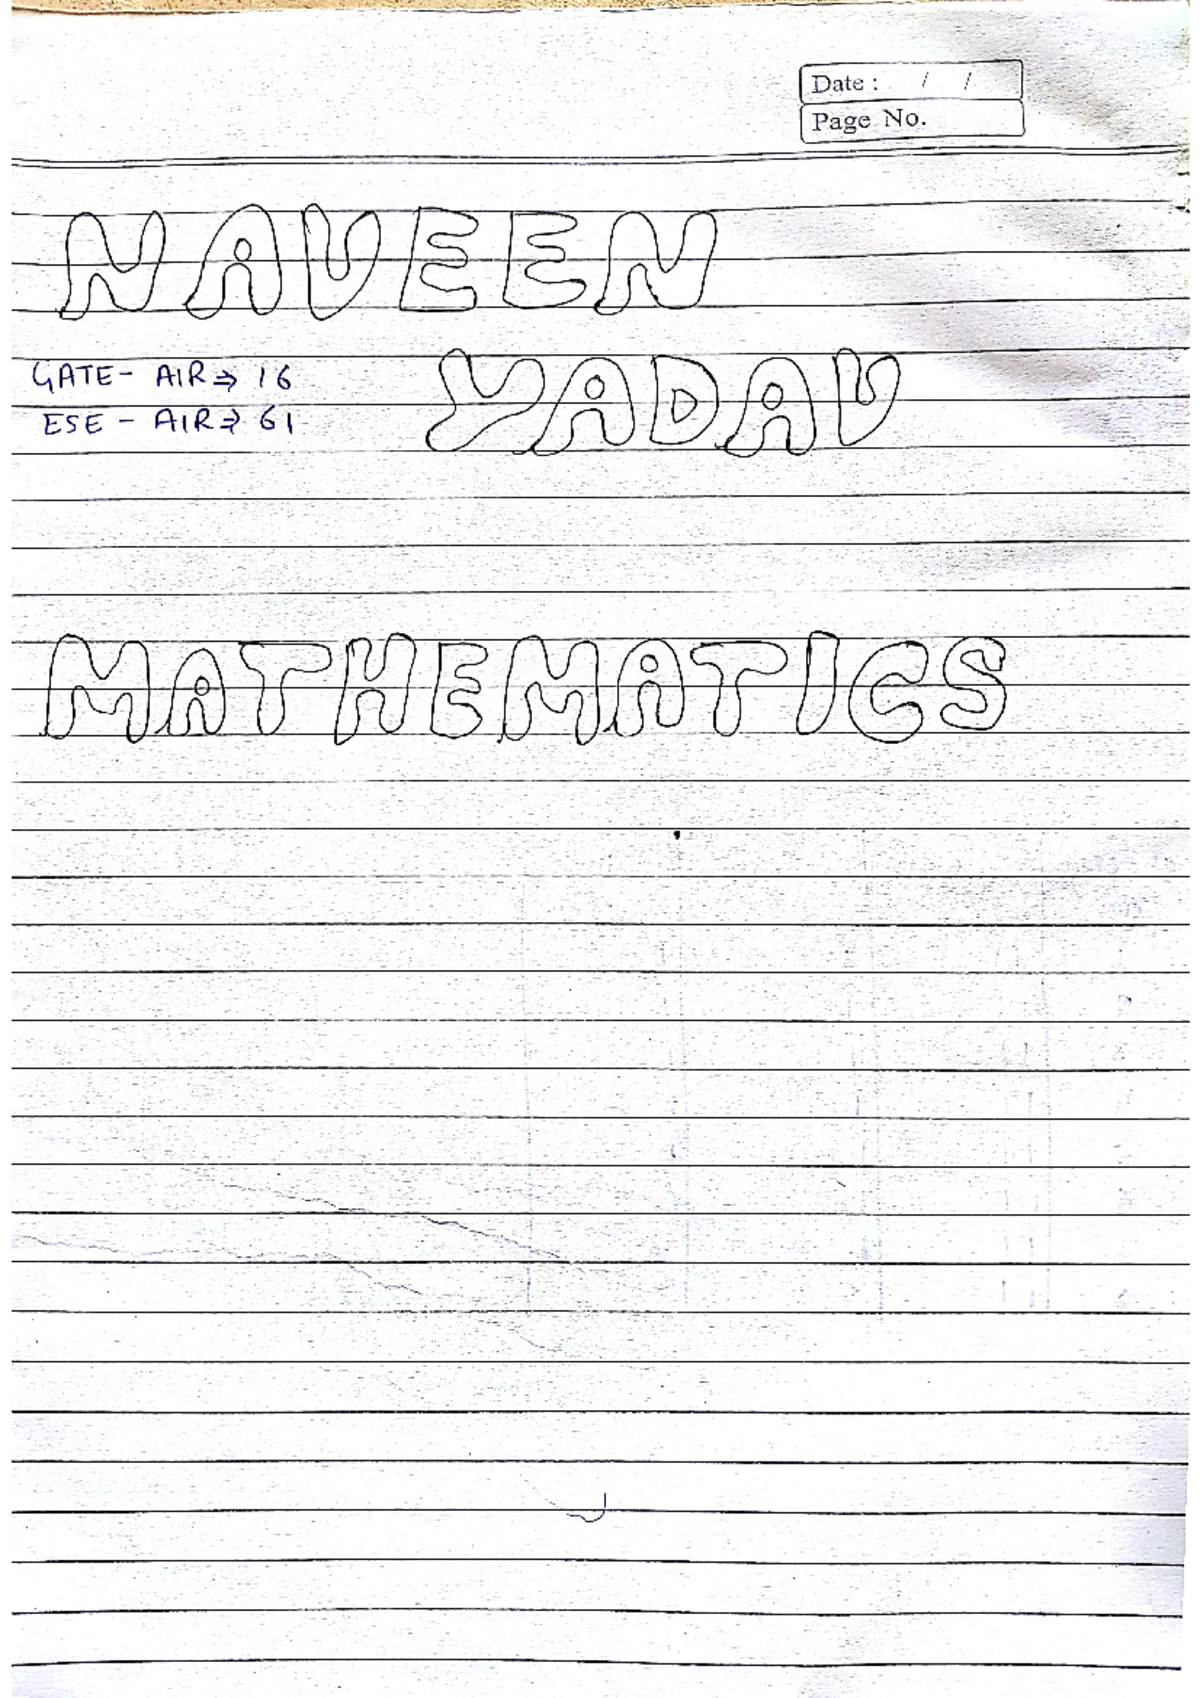 Date : / /
Page No.
NAVEEN
YADAV
GATE- AIR ⇒ 16
ESE - AIR ⇒ 61
MATHEMATICS